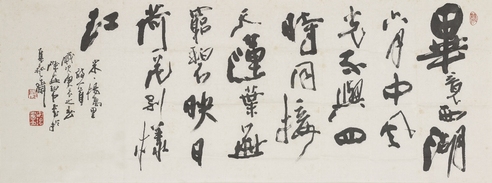 畢竟西湖
六月中風
光不與四
時同接
天蓮葉無
窮碧映日
荷花別樣
紅
宋楊萬里